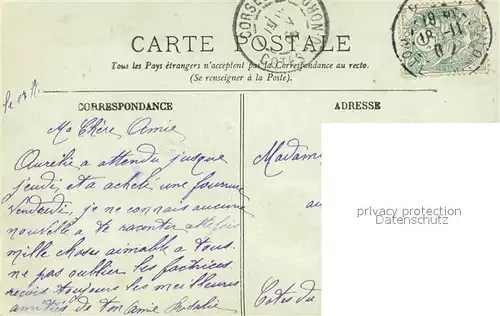 CARTE POSTALE
Tous les Pays étrangers n'acceptent pas la Correspondance au recto.
(Se renseigner à la Poste).
CORRESPONDANCE
ADRESSE
Ma Chère Amie
Aurélie a attendu jusque
jeudi, et a acheté une fourrure
Vendredi, je ne connais aucune
nouvelle a te raconter
mille choses aimable a tous.
ne pas oublier les factrices
reçois toujours les meilleures
amitiés de ton amie Rosalie
Madam
au
Cotes du
privacy protection
watermark